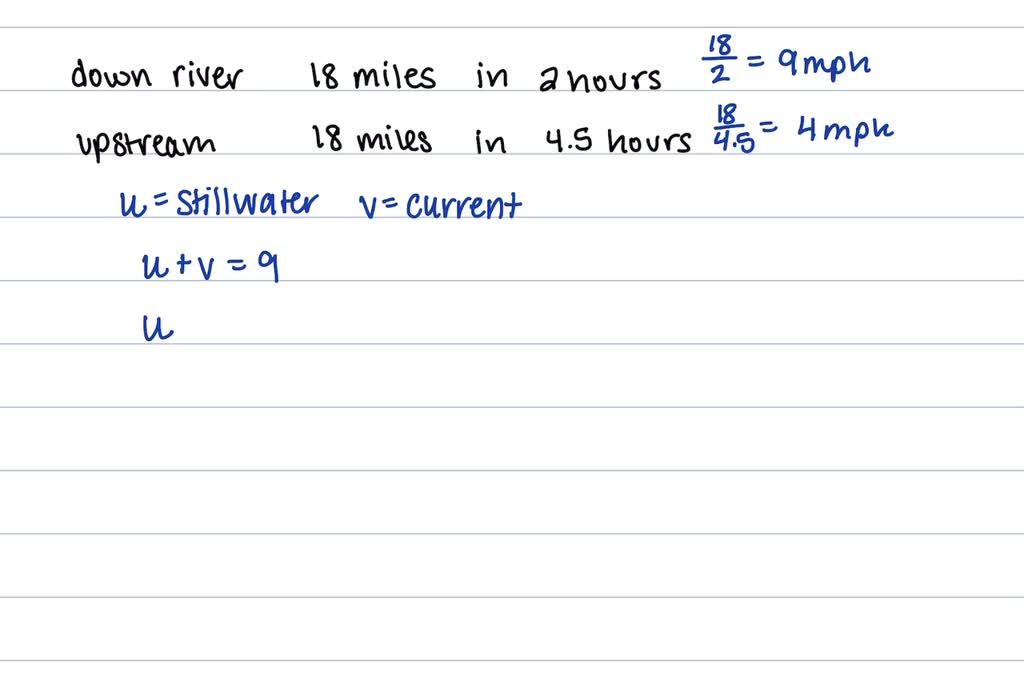 down river 18 miles in 2 hours 18/2 = 9mph
upstream 18 miles in 4.5 hours 18/4.5 = 4 mph
u = stillwater v = current
u + v = 9
u